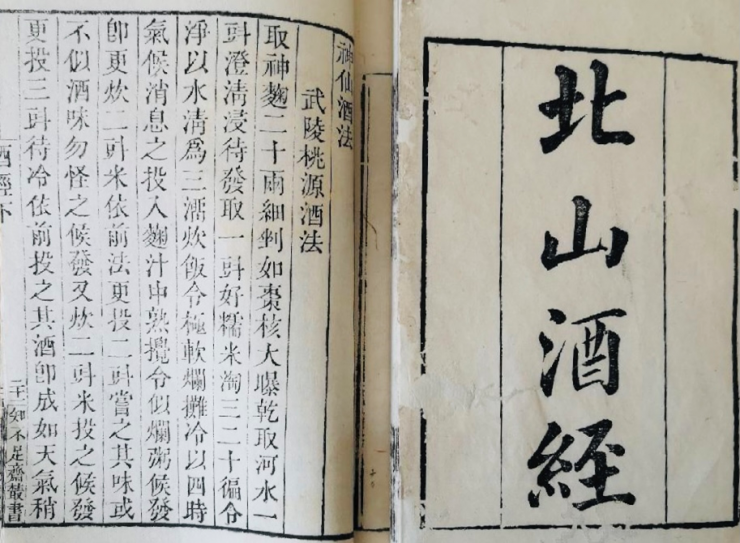 北山酒經
神仙酒法
武陵桃源酒法
取神麴二十兩細剉如棗核大曝乾取河水一
㪷澄清浸待發取一㪷好糯米淘三二十徧令
淨以水清爲三溜炊飯令極軟爛攤冷以四時
氣候消息之投入麴汁中熟攪令似爛粥候發
卽更炊二㪷米依前法更投二㪷嘗之其味或
不似酒味勿怪之候發又炊二㪷米投之候發
更投三㪷待冷依前投之其酒卽成如天氣稍
酒經下
二十一
知不足齋叢書